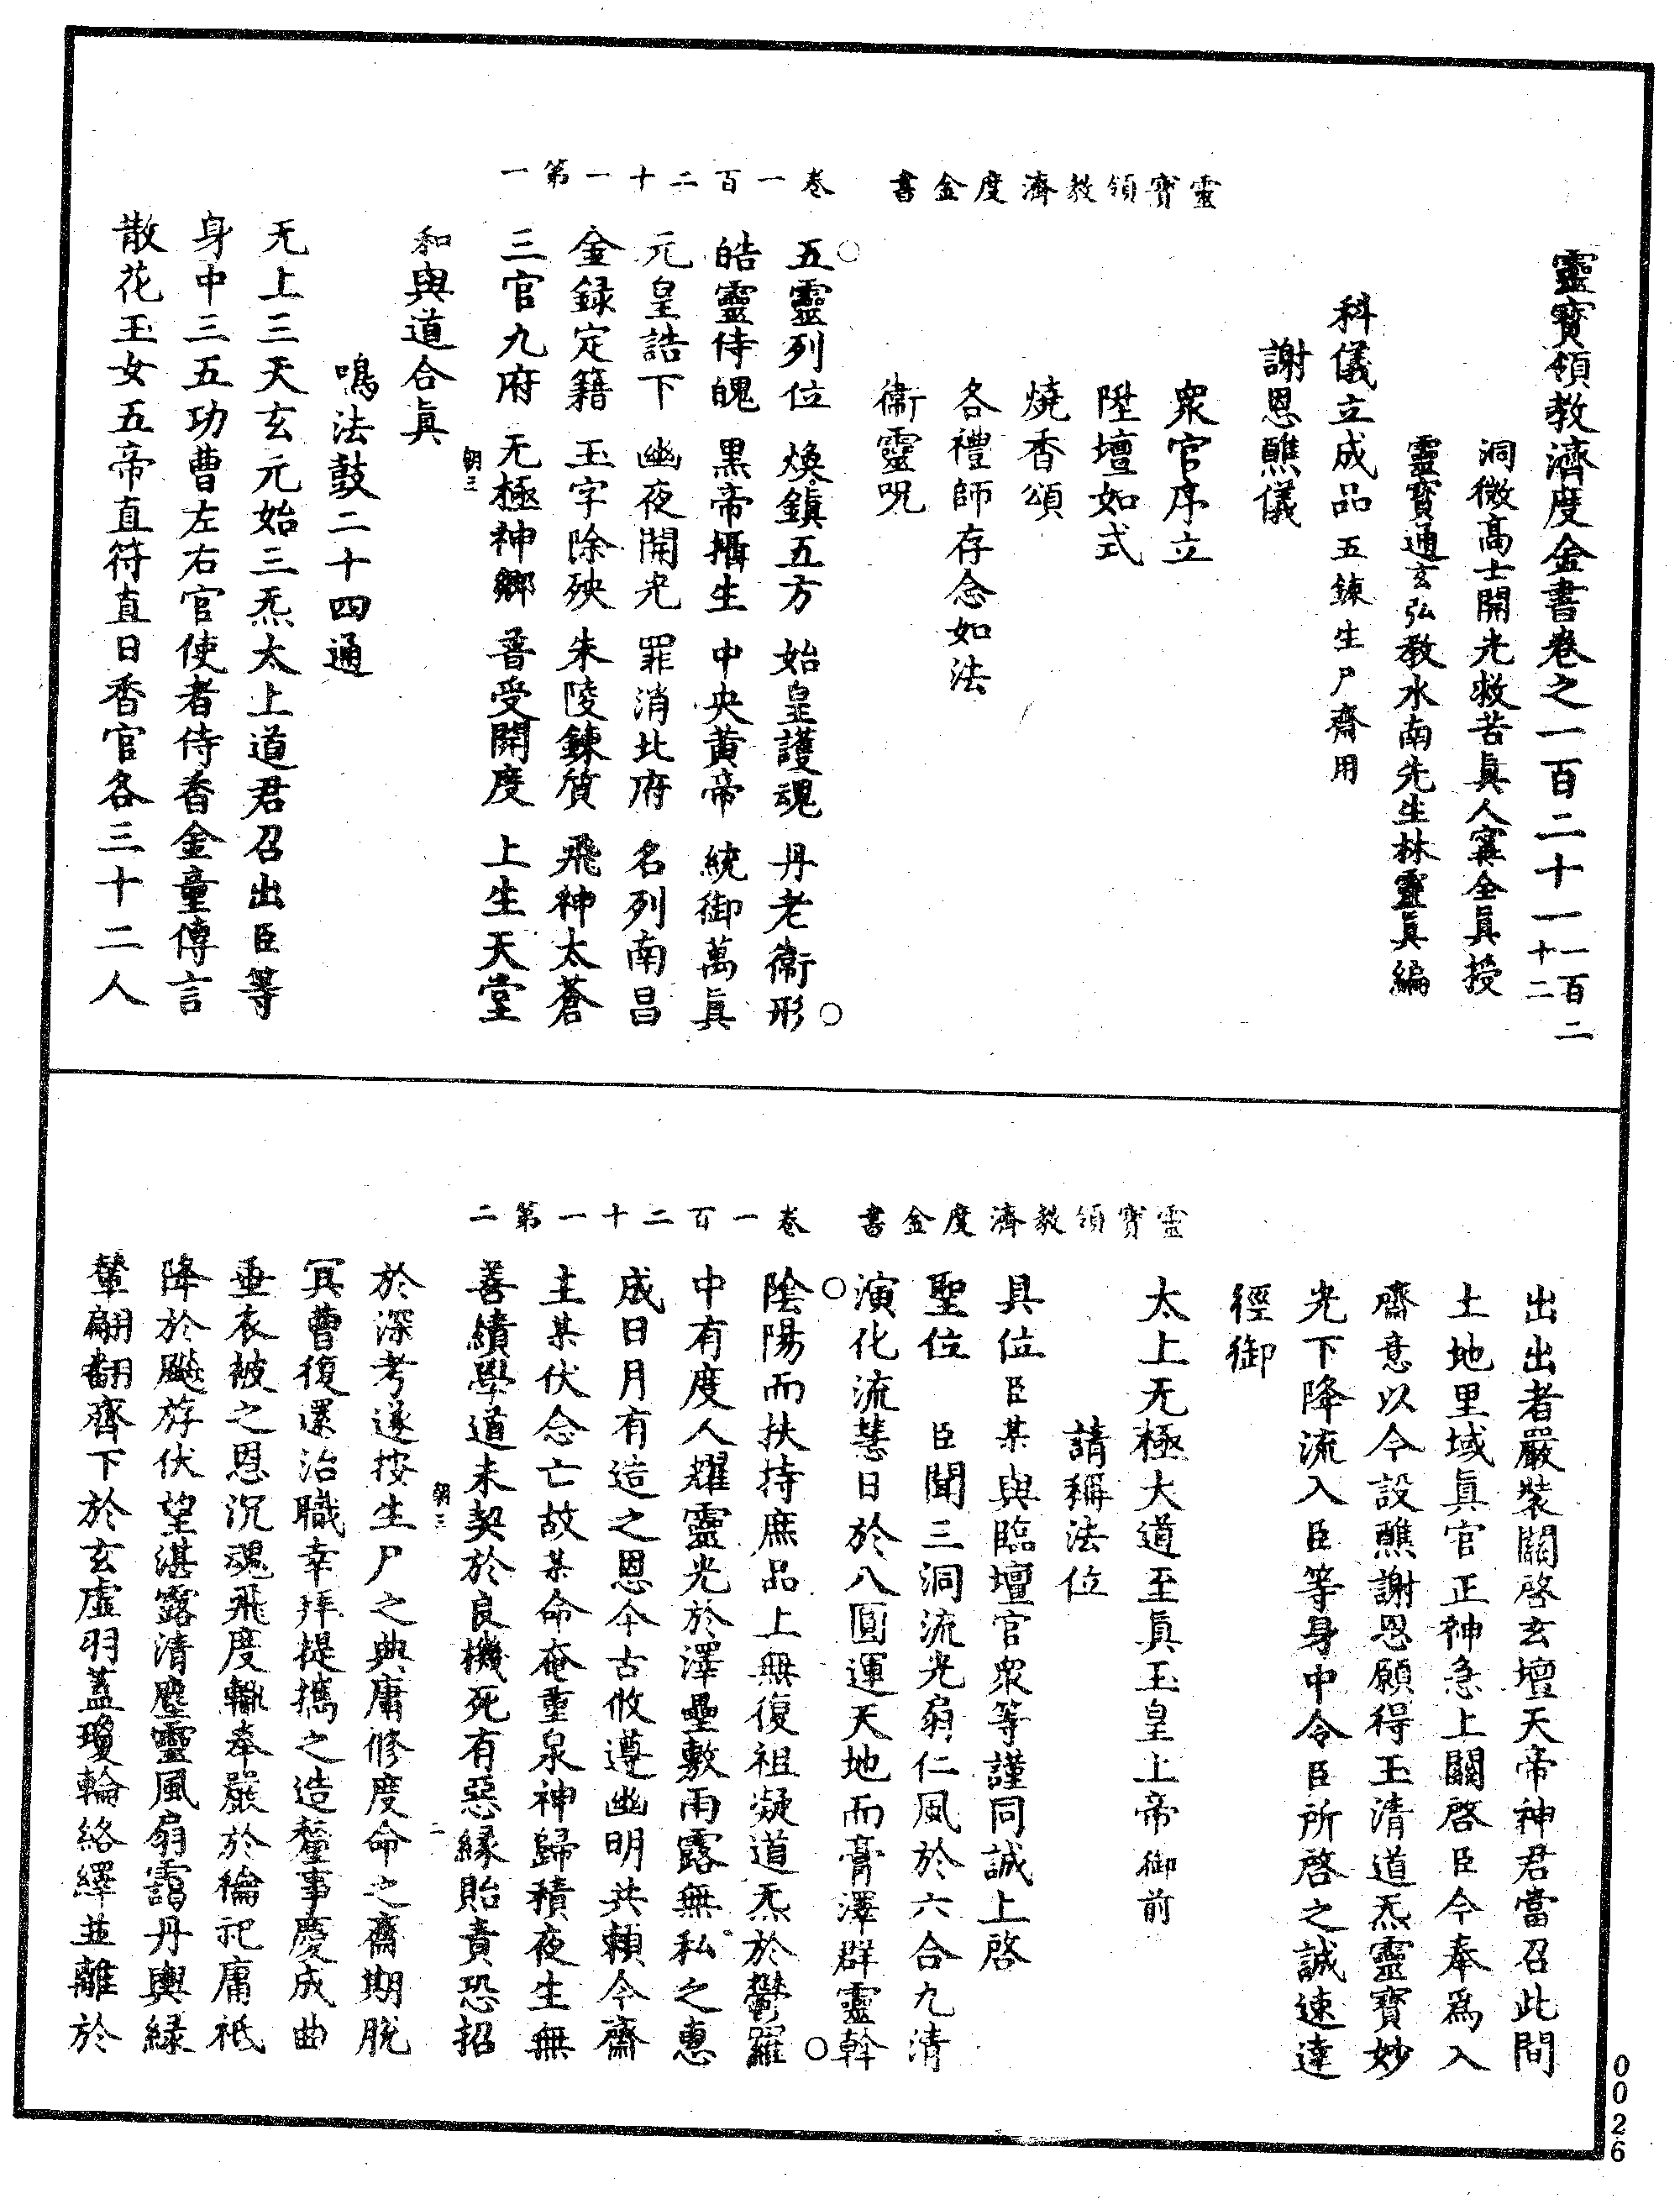 靈寶領教濟度金書卷之一百二十一 一百二十二
洞微高士開光救苦眞人甯全眞授
靈寶通玄弘教水南先生林靈眞編
科儀立成品 五鍊生尸齋用
謝恩醮儀
衆官序立
陞壇如式
燒香頌
各禮師存念如法
衞靈呪
靈寶領教濟度金書 卷一百二十一第一
五靈列位 煥鎭五方 始皇護魂 丹老衞形
皓靈侍魄 黑帝攝生 中央黃帝 統御萬眞
元皇誥下 幽夜開光 罪消北府 名列南昌
金録定籍 玉字除殃 朱陵鍊質 飛神太蒼
三官九府 无極神鄉 普受開度 上生天堂
朝三
和與道合眞
鳴法鼓二十四通
无上三天玄元始三炁太上道君召出臣等
身中三五功曹左右官使者侍香金童傳言
散花玉女五帝直符直日香官各三十二人
出出者嚴裝關啓玄壇天帝神君當召此間
土地里域眞官正神急上關啓臣今奉爲入
齋意以今設醮謝恩願得玉清道炁靈寶妙
光下降流入臣等身中令臣所啓之誠速達
徑御
太上无極大道至眞玉皇上帝御前
請稱法位
具位臣某與臨壇官衆等謹同誠上啓
聖位 臣聞三洞流光扇仁風於六合九清
演化流慧日於八圓運天地而膏澤群靈斡
靈寶領教濟度金書 卷一百二十一第二
陰陽而扶持庶品上無復祖凝道炁於鬱羅
中有度人耀靈光於澤壘敷雨露無私之惠
成日月有造之恩今古攸遵幽明共賴今齋
主某伏念亡故某命奄重泉神歸積夜生無
善績學道未契於良機死有惡緣貽責恐招
朝三 二
於深考遂按生尸之典庸修度命之齋期脫
冥曹復還治職幸拜提攜之造釐事慶成曲
垂衣被之恩沉魂飛度輙奉嚴於禴祀庸祗
降於飇斿伏望湛露清塵靈風扇靄丹輿緑
輦翩翻齊下於玄虛羽蓋瓊輪絡繹並離於
0026